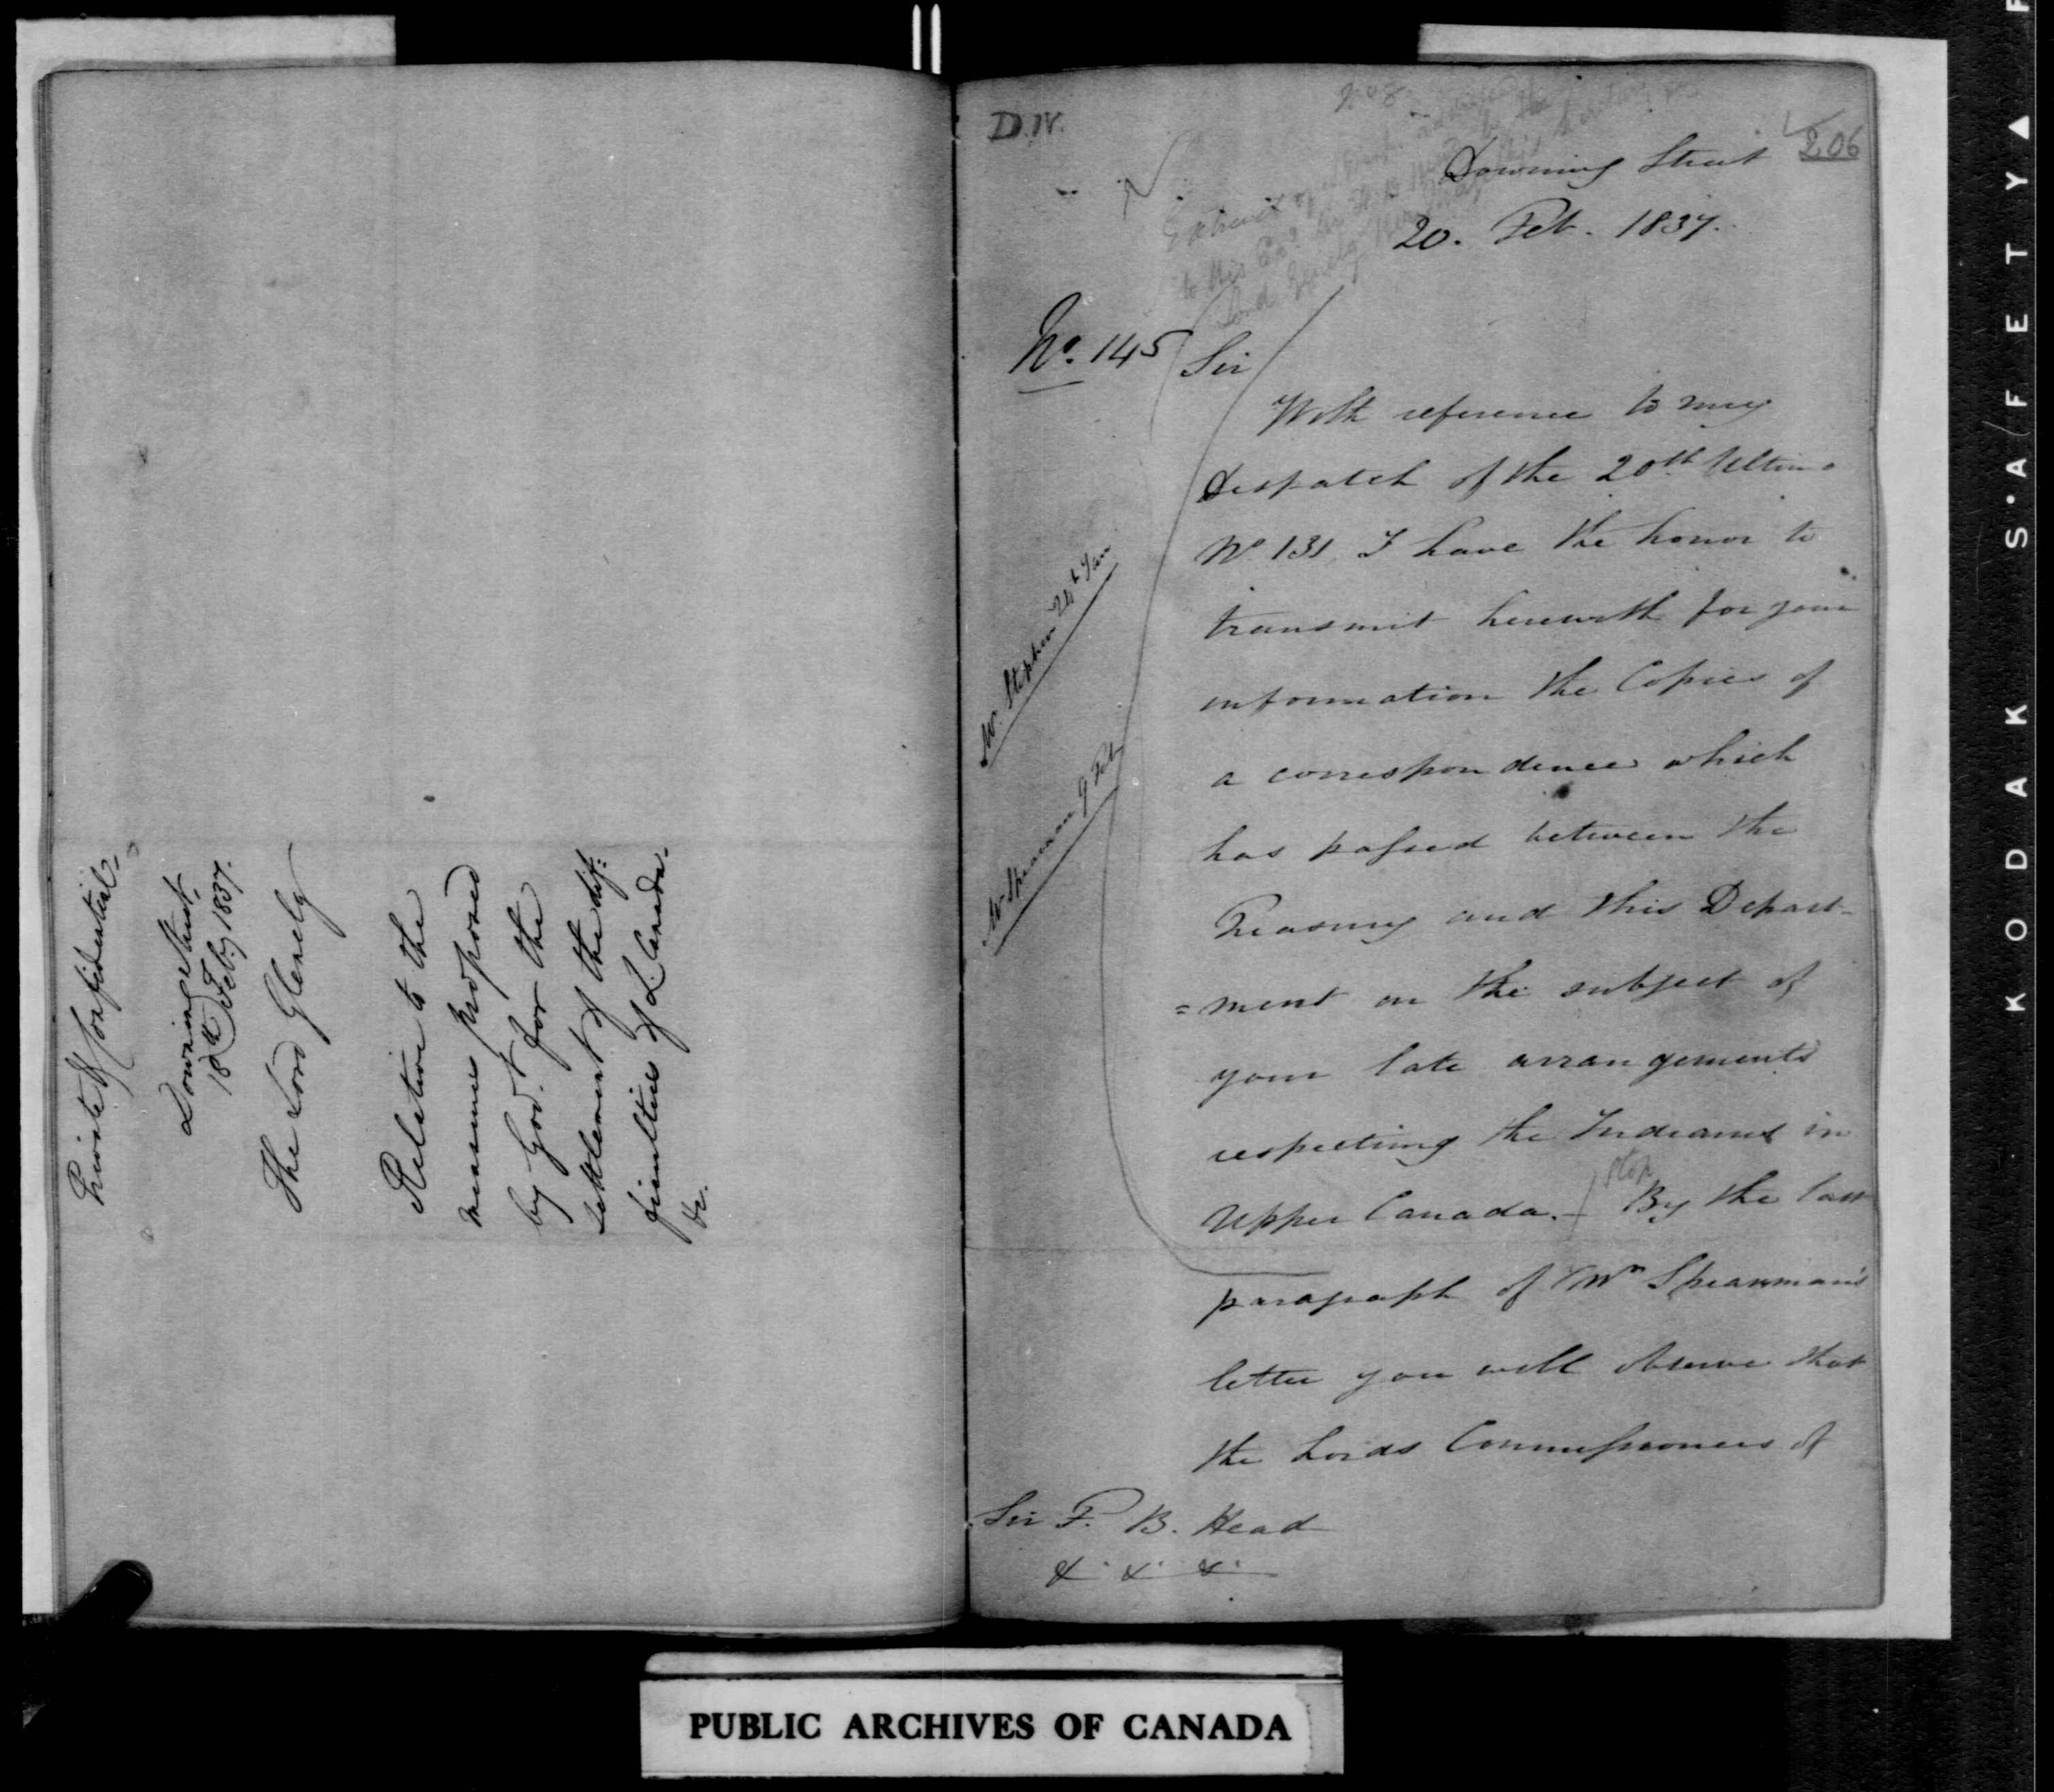 Private & Confidential
Downing Street
18th Feby 1837.
The Lord Glenelg
Relative to the
measures proposed
by Govt. for the
settlement of the dif:
ficulties of L. Canada.
&c.
D.N.
206
Downing Street
20. Feb. 1837.
No. 145
Sir
With reference to my
Despatch of the 20th Ultimo
No 131, I have the honor to
transmit herewith for your
Mr. Stephen 24th Jan
information the Copies of
a correspondence which
Mr Spearman 9 Feb
has passed between the
Treasury and this Depart-
=ment on the subject of
your late arrangements
respecting the Indians in
Stop
Upper Canada. - By the last
paragraph of Mr Spearman's
letter you will observe that
the Lords Commissioners of
Sir F. B. Head
&. &. &.
PUBLIC ARCHIVES OF CANADA
KODAK S'AFETY